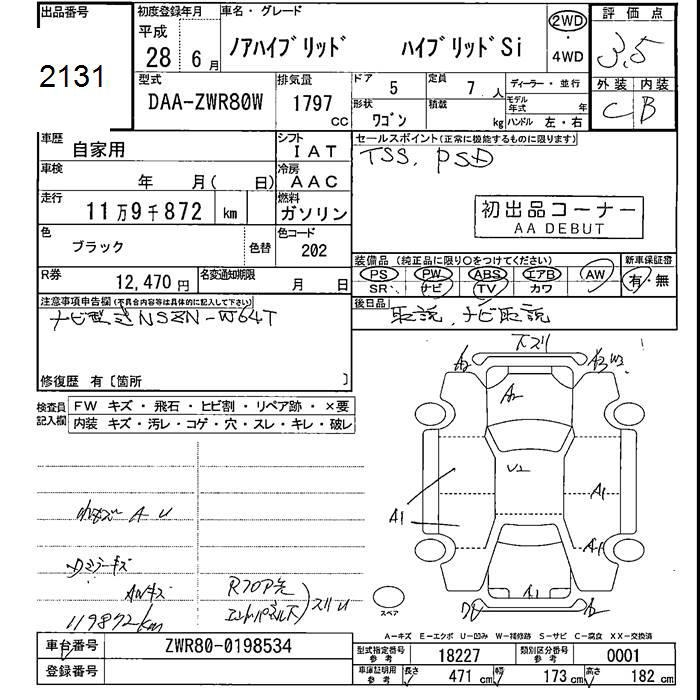 出品番号 初度登録年月 車名・グレード 2WD 評価点
2131 平成 28 6月 ノアハイブリッド ハイブリッドSi 4WD 3.5
型式 排気量 ドア 5 定員 7人 ディーラー・並行 外装 内装
DAA-ZWR80W 1797 CC 形状 ワゴン 積載 kg モデル年式 年 ハンドル 左・右 C B
車歴 自家用 シフト IAT セールスポイント(正常に機能するものに限ります)
車検 年 月( 日) 冷房 AAC TSS. PSD
走行 11万9千872 km 燃料 ガソリン 初出品コーナー
AA DEBUT
色 ブラック 色替 色コード 202
装備品 (純正品に限り○をつけてください) 新車保証書
R券 12,470円 名変通知期限 月 日 PS PW ABS エアB AW 有・無
SR ナビ TV カワ
注意事項申告欄(不具合内容等は具体的に記入して下さい) 後日品 取説、ナビ取説
ナビ型式NSZN-W64T
修復歴 有〔箇所 〕
検査員記入欄 FW キズ・飛石・ヒビ割・リペア跡・×要
内装 キズ・汚レ・コゲ・穴・スレ・キレ・破レ
スズリ
A2 A3 W3
A2
U2
A1 A1
A1
A1
A U
Dミラーキズ
AWキズ
Rフロア先
エンドパネル下 スリU
119872km
スペア
A-キズ E-エクボ U-凹み W-補修跡 S-サビ C-腐食 XX-交換済
車台番号 ZWR80-0198534 型式指定番号 参考 18227 類別区分番号 参考 0001
登録番号 車庫証明用 参考 長さ 471cm 幅 173cm 高さ 182cm